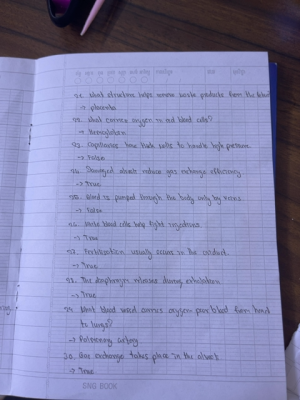 51. What structure helps remove waste products from the blood
→ placenta
52. What carries oxygen in red blood cells?
→ Hemoglobin
53. Capillaries have thick walls to handle high pressure
→ False
54. Damaged alveoli reduce gas exchange efficiency
→ True
55. Blood is pumped through the body only by veins
→ False
56. White blood cells help fight infections
→ True
57. Fertilization usually occurs in the oviduct.
→ True
58. The diaphragm relaxes during exhalation
→ True
59. What blood vessel carries oxygen poor blood from heart
to lungs?
→ Pulmonary artery
20. Gas exchange takes place in the alveoli
→ True
SNG BOOK